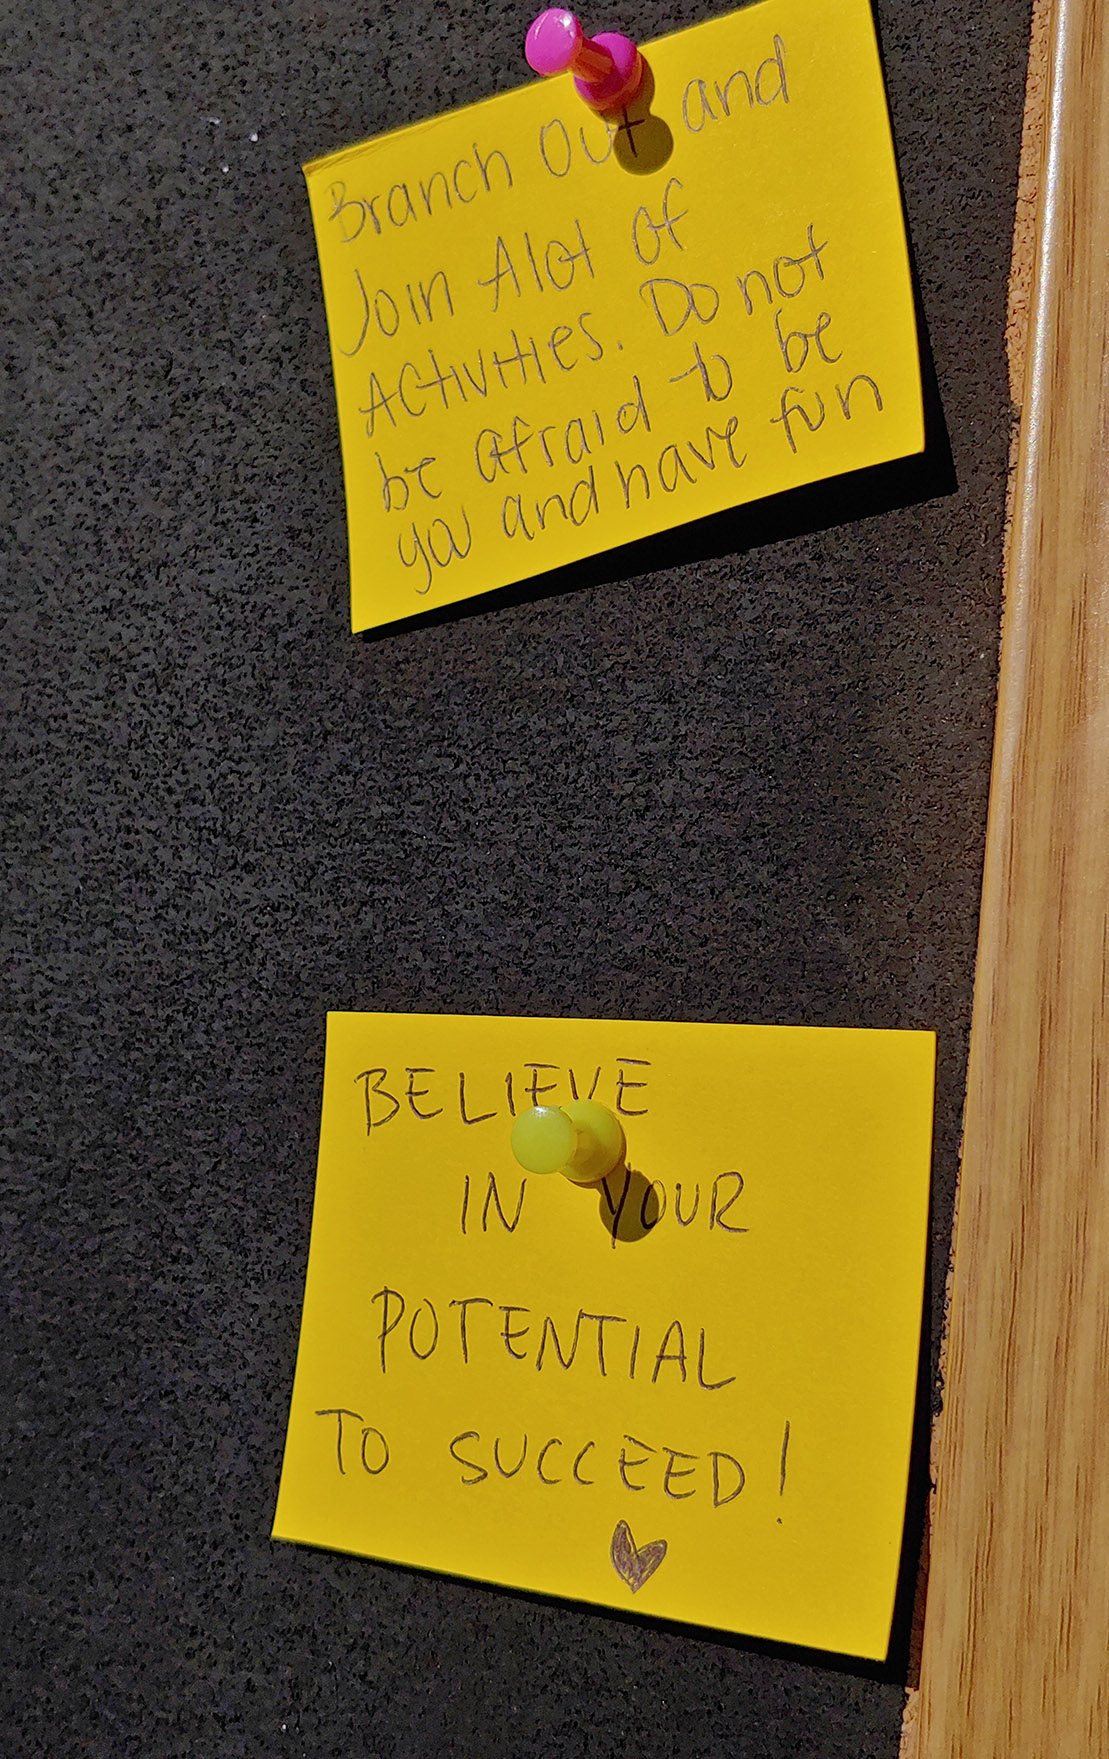 Branch Out and
Join Alot of
Activities. Do not
be afraid to be
you and have fun
BELIEVE
IN YOUR
POTENTIAL
TO SUCCEED!